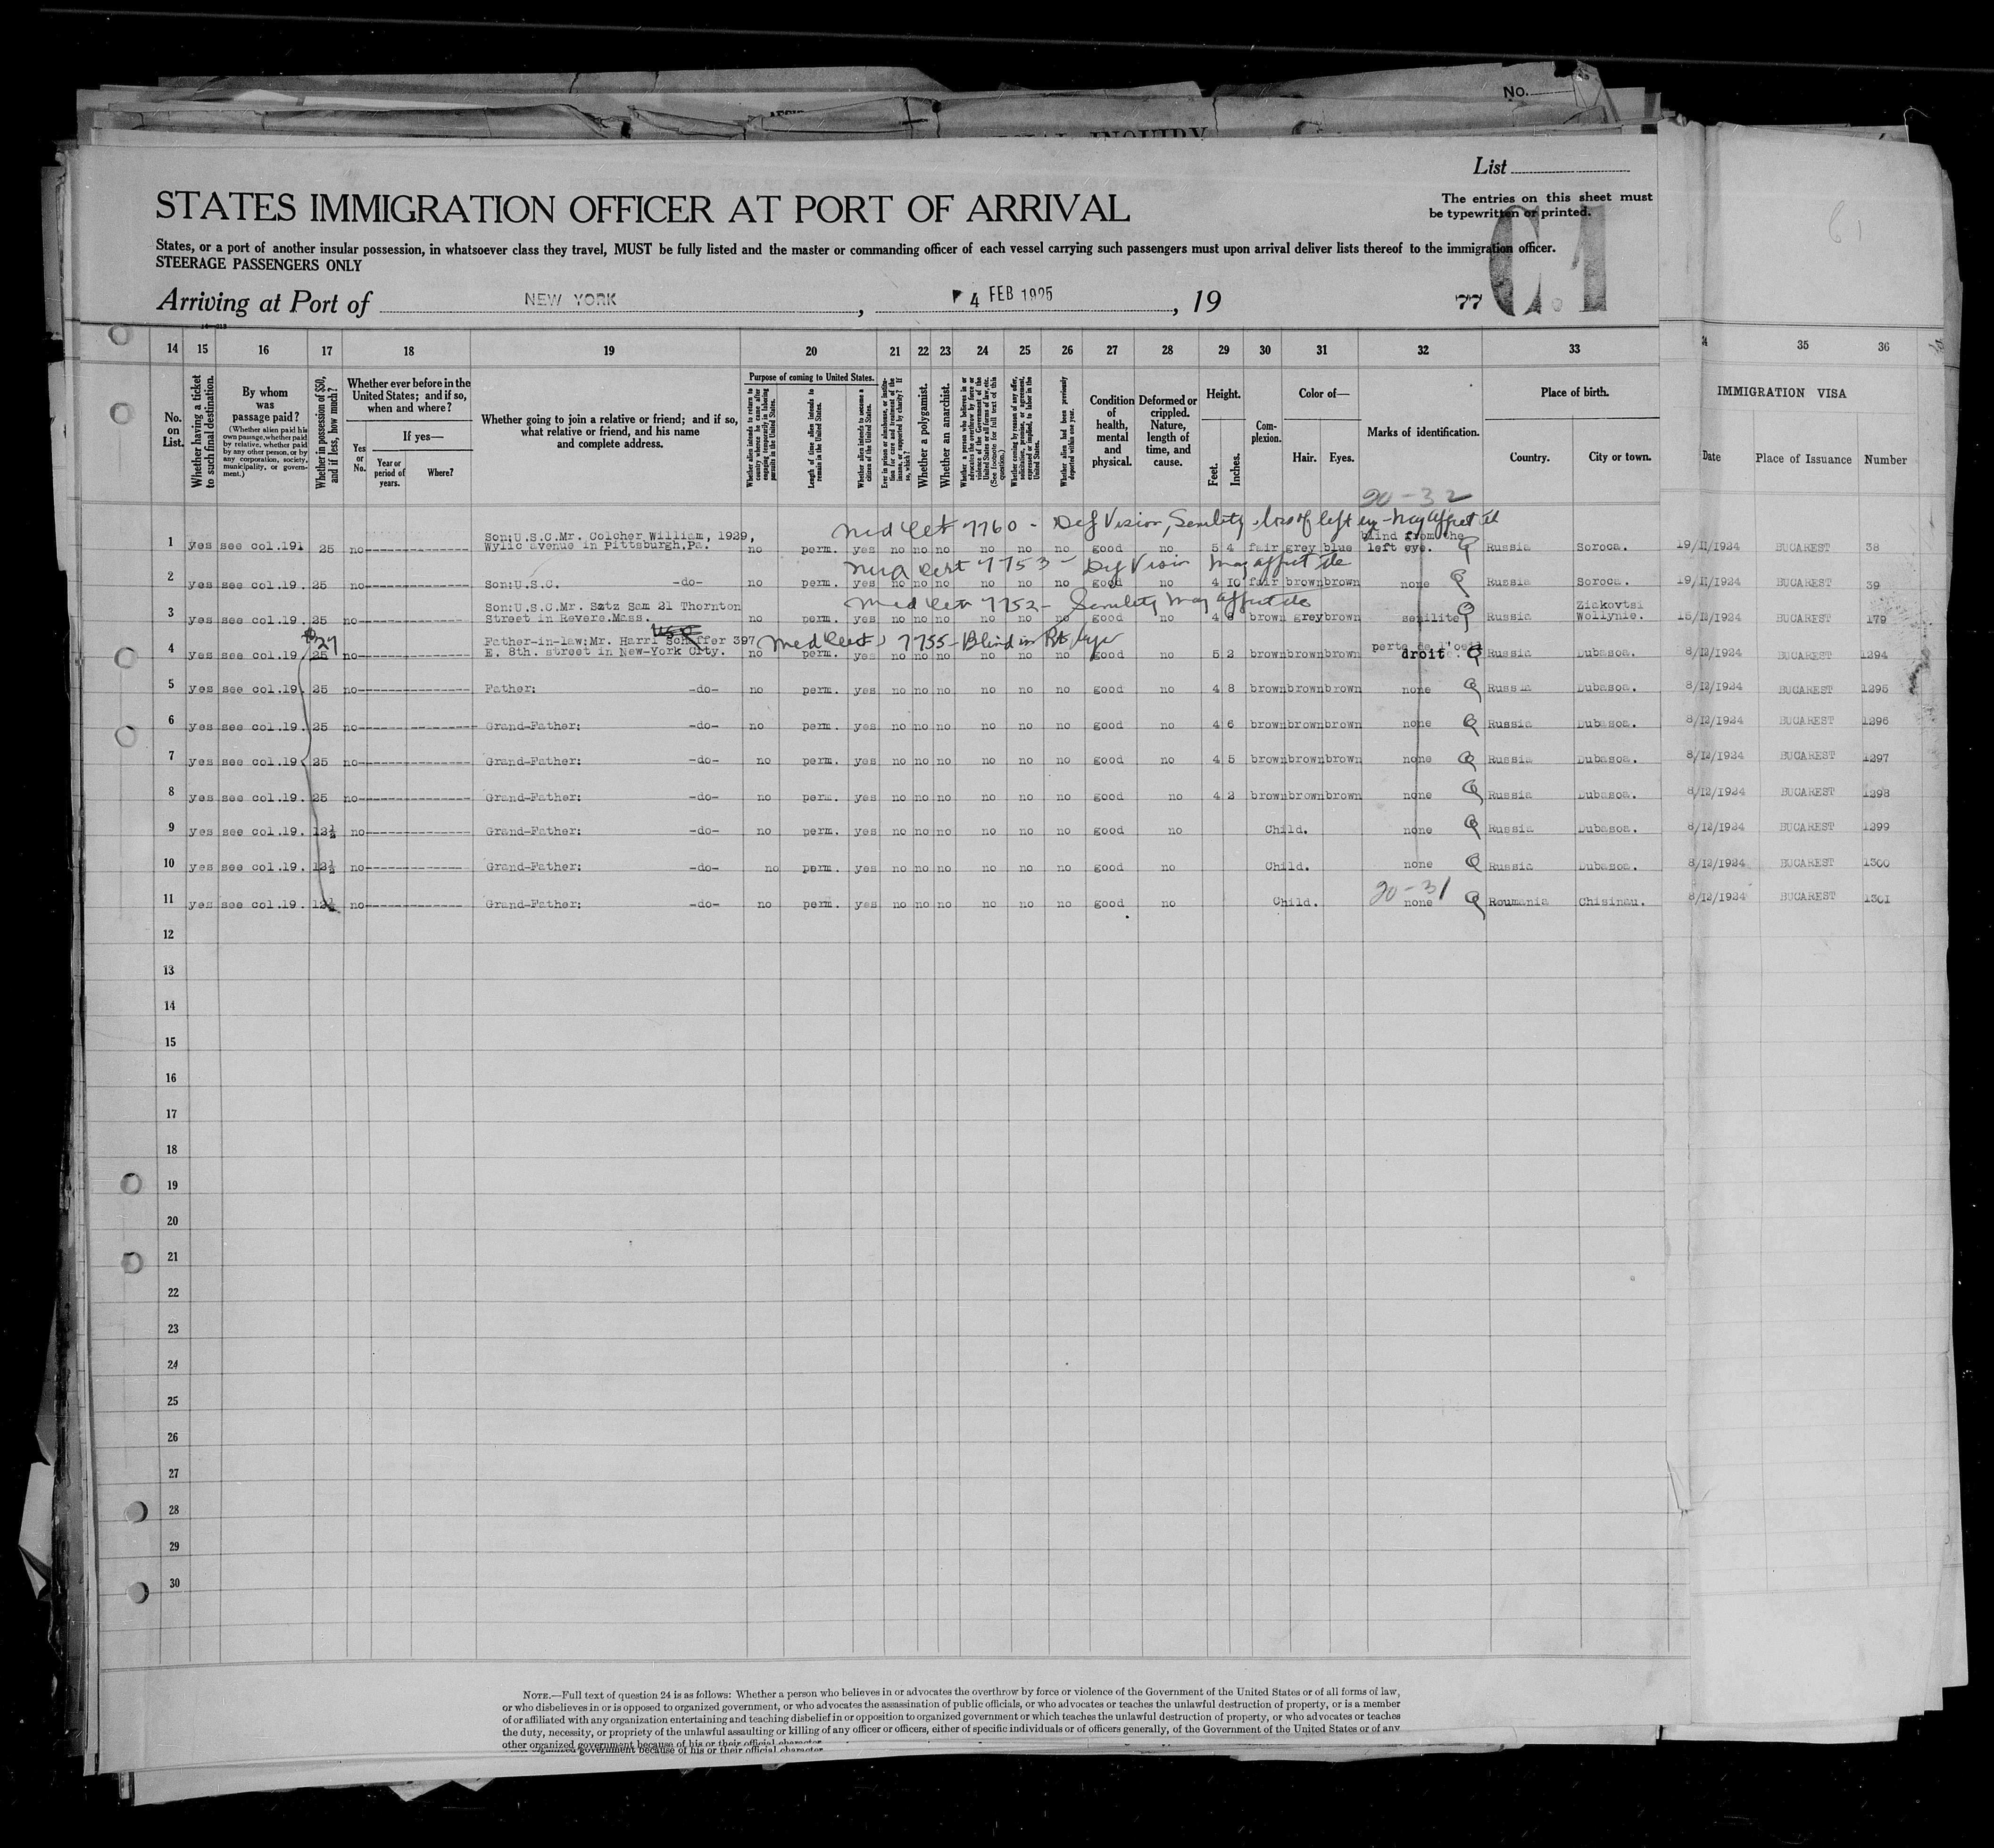 No.
SPECIAL INQUIRY
List
The entries on this sheet must
be typewritten or printed.
STATES IMMIGRATION OFFICER AT PORT OF ARRIVAL
C.1
61
States, or a port of another insular possession, in whatsoever class they travel, MUST be fully listed and the master or commanding officer of each vessel carrying such passengers must upon arrival deliver lists thereof to the immigration officer.
STEERAGE PASSENGERS ONLY
Arriving at Port of NEW YORK, 4 FEB 1925, 19 77
14 15 16 17 18 19 20 21 22 23 24 25 26 27 28 29 30 31 32 33 35 36
No. on List.
Whether having a ticket to such final destination.
By whom was passage paid?
(Whether alien paid his own passage, whether paid by relative, whether paid by any other person, or by any corporation, society, municipality, or government.)
Whether in possession of $50, and if less, how much?
Whether ever before in the United States; and if so, when and where?
Yes or No.
If yes—
Year or period of years.
Where?
Whether going to join a relative or friend; and if so, what relative or friend, and his name and complete address.
Purpose of coming to United States.
Whether alien intends to return to country whence he came after engaging temporarily in laboring pursuits in the United States.
Length of time alien intends to remain in the United States.
Whether alien intends to become a citizen of the United States.
Ever in prison or almshouse, or institution for care and treatment of the insane, or supported by charity? If so, which?
Whether a polygamist.
Whether an anarchist.
Whether a person who believes in or advocates the overthrow by force or violence of the Government of the United States or all forms of law, etc. (See footnote for full text of this question.)
Whether coming by reason of any offer, solicitation, promise, or agreement, expressed or implied, to labor in the United States.
Whether alien had been previously deported within one year.
Condition of health, mental and physical.
Deformed or crippled. Nature, length of time, and cause.
Height.
Feet. Inches.
Complexion.
Color of—
Hair. Eyes.
Marks of identification.
Place of birth.
Country. City or town.
IMMIGRATION VISA
Date Place of Issuance Number
20-32
Med Cert 7760 - Def Vision, Senility, loss of left eye - may affect
Son:U.S.C.Mr. Colcher William, 1929, blind from the
1 yes see col.191 25 no Wylic avenue in Pittsburgh,Pa. no perm. yes no no no no no no good no 5 4 fair grey blue left eye. Russia Soroca. 19/11/1924 BUCAREST 38
Med Cert 7753 - Def Vision may affect
2 yes see col.19. 25 no Son:U.S.C. -do- no perm. yes no no no no no no good no 4 10 fair brown brown none Russia Soroca. 19/11/1924 BUCAREST 39
Med Cert 7752 - Senility may affect
Son:U.S.C.Mr. Satz Sam 21 Thornton Ziakovtsi
3 yes see col.19. 25 no Street in Revere.Mass. no perm. yes no no no no no no good no 4 8 brown grey brown senilite Russia Wollynie. 15/12/1924 BUCAREST 179
$27
Med Cert 7755 - Blind in Rt eye
Father-in-law:Mr. Harri Schffer 397 perte de l'oeil
4 yes see col.19. 25 no E. 8th. street in New-York City. no perm. yes no no no no no no good no 5 2 brown brown brown droit. Russia Dubasoa. 8/12/1924 BUCAREST 1294
5 yes see col.19. 25 no Father: -do- no perm. yes no no no no no no good no 4 8 brown brown brown none Russia Dubasoa. 8/12/1924 BUCAREST 1295
6 yes see col.19. 25 no Grand-Father: -do- no perm. yes no no no no no no good no 4 6 brown brown brown none Russia Dubasoa. 8/12/1924 BUCAREST 1296
7 yes see col.19. 25 no Grand-Father: -do- no perm. yes no no no no no no good no 4 5 brown brown brown none Russia Dubasoa. 8/12/1924 BUCAREST 1297
8 yes see col.19. 25 no Grand-Father: -do- no perm. yes no no no no no no good no 4 2 brown brown brown none Russia Dubasoa. 8/12/1924 BUCAREST 1298
9 yes see col.19. 12½ no Grand-Father: -do- no perm. yes no no no no no no good no Child. none Russia Dubasoa. 8/12/1924 BUCAREST 1299
10 yes see col.19. 12½ no Grand-Father: -do- no perm. yes no no no no no no good no Child. none Russia Dubasoa. 8/12/1924 BUCAREST 1300
20-31
11 yes see col.19. 12½ no Grand-Father: -do- no perm. yes no no no no no no good no Child. none Roumania Chisinau. 8/12/1924 BUCAREST 1301
12
13
14
15
16
17
18
19
20
21
22
23
24
25
26
27
28
29
30
NOTE.—Full text of question 24 is as follows: Whether a person who believes in or advocates the overthrow by force or violence of the Government of the United States or of all forms of law,
or who disbelieves in or is opposed to organized government, or who advocates the assassination of public officials, or who advocates or teaches the unlawful destruction of property, or is a member
of or affiliated with any organization entertaining and teaching disbelief in or opposition to organized government or which teaches the unlawful destruction of property, or who advocates or teaches
the duty, necessity, or propriety of the unlawful assaulting or killing of any officer or officers, either of specific individuals or of officers generally, of the Government of the United States or of any
other organized government because of his or their official character
organized government because of his or their official character